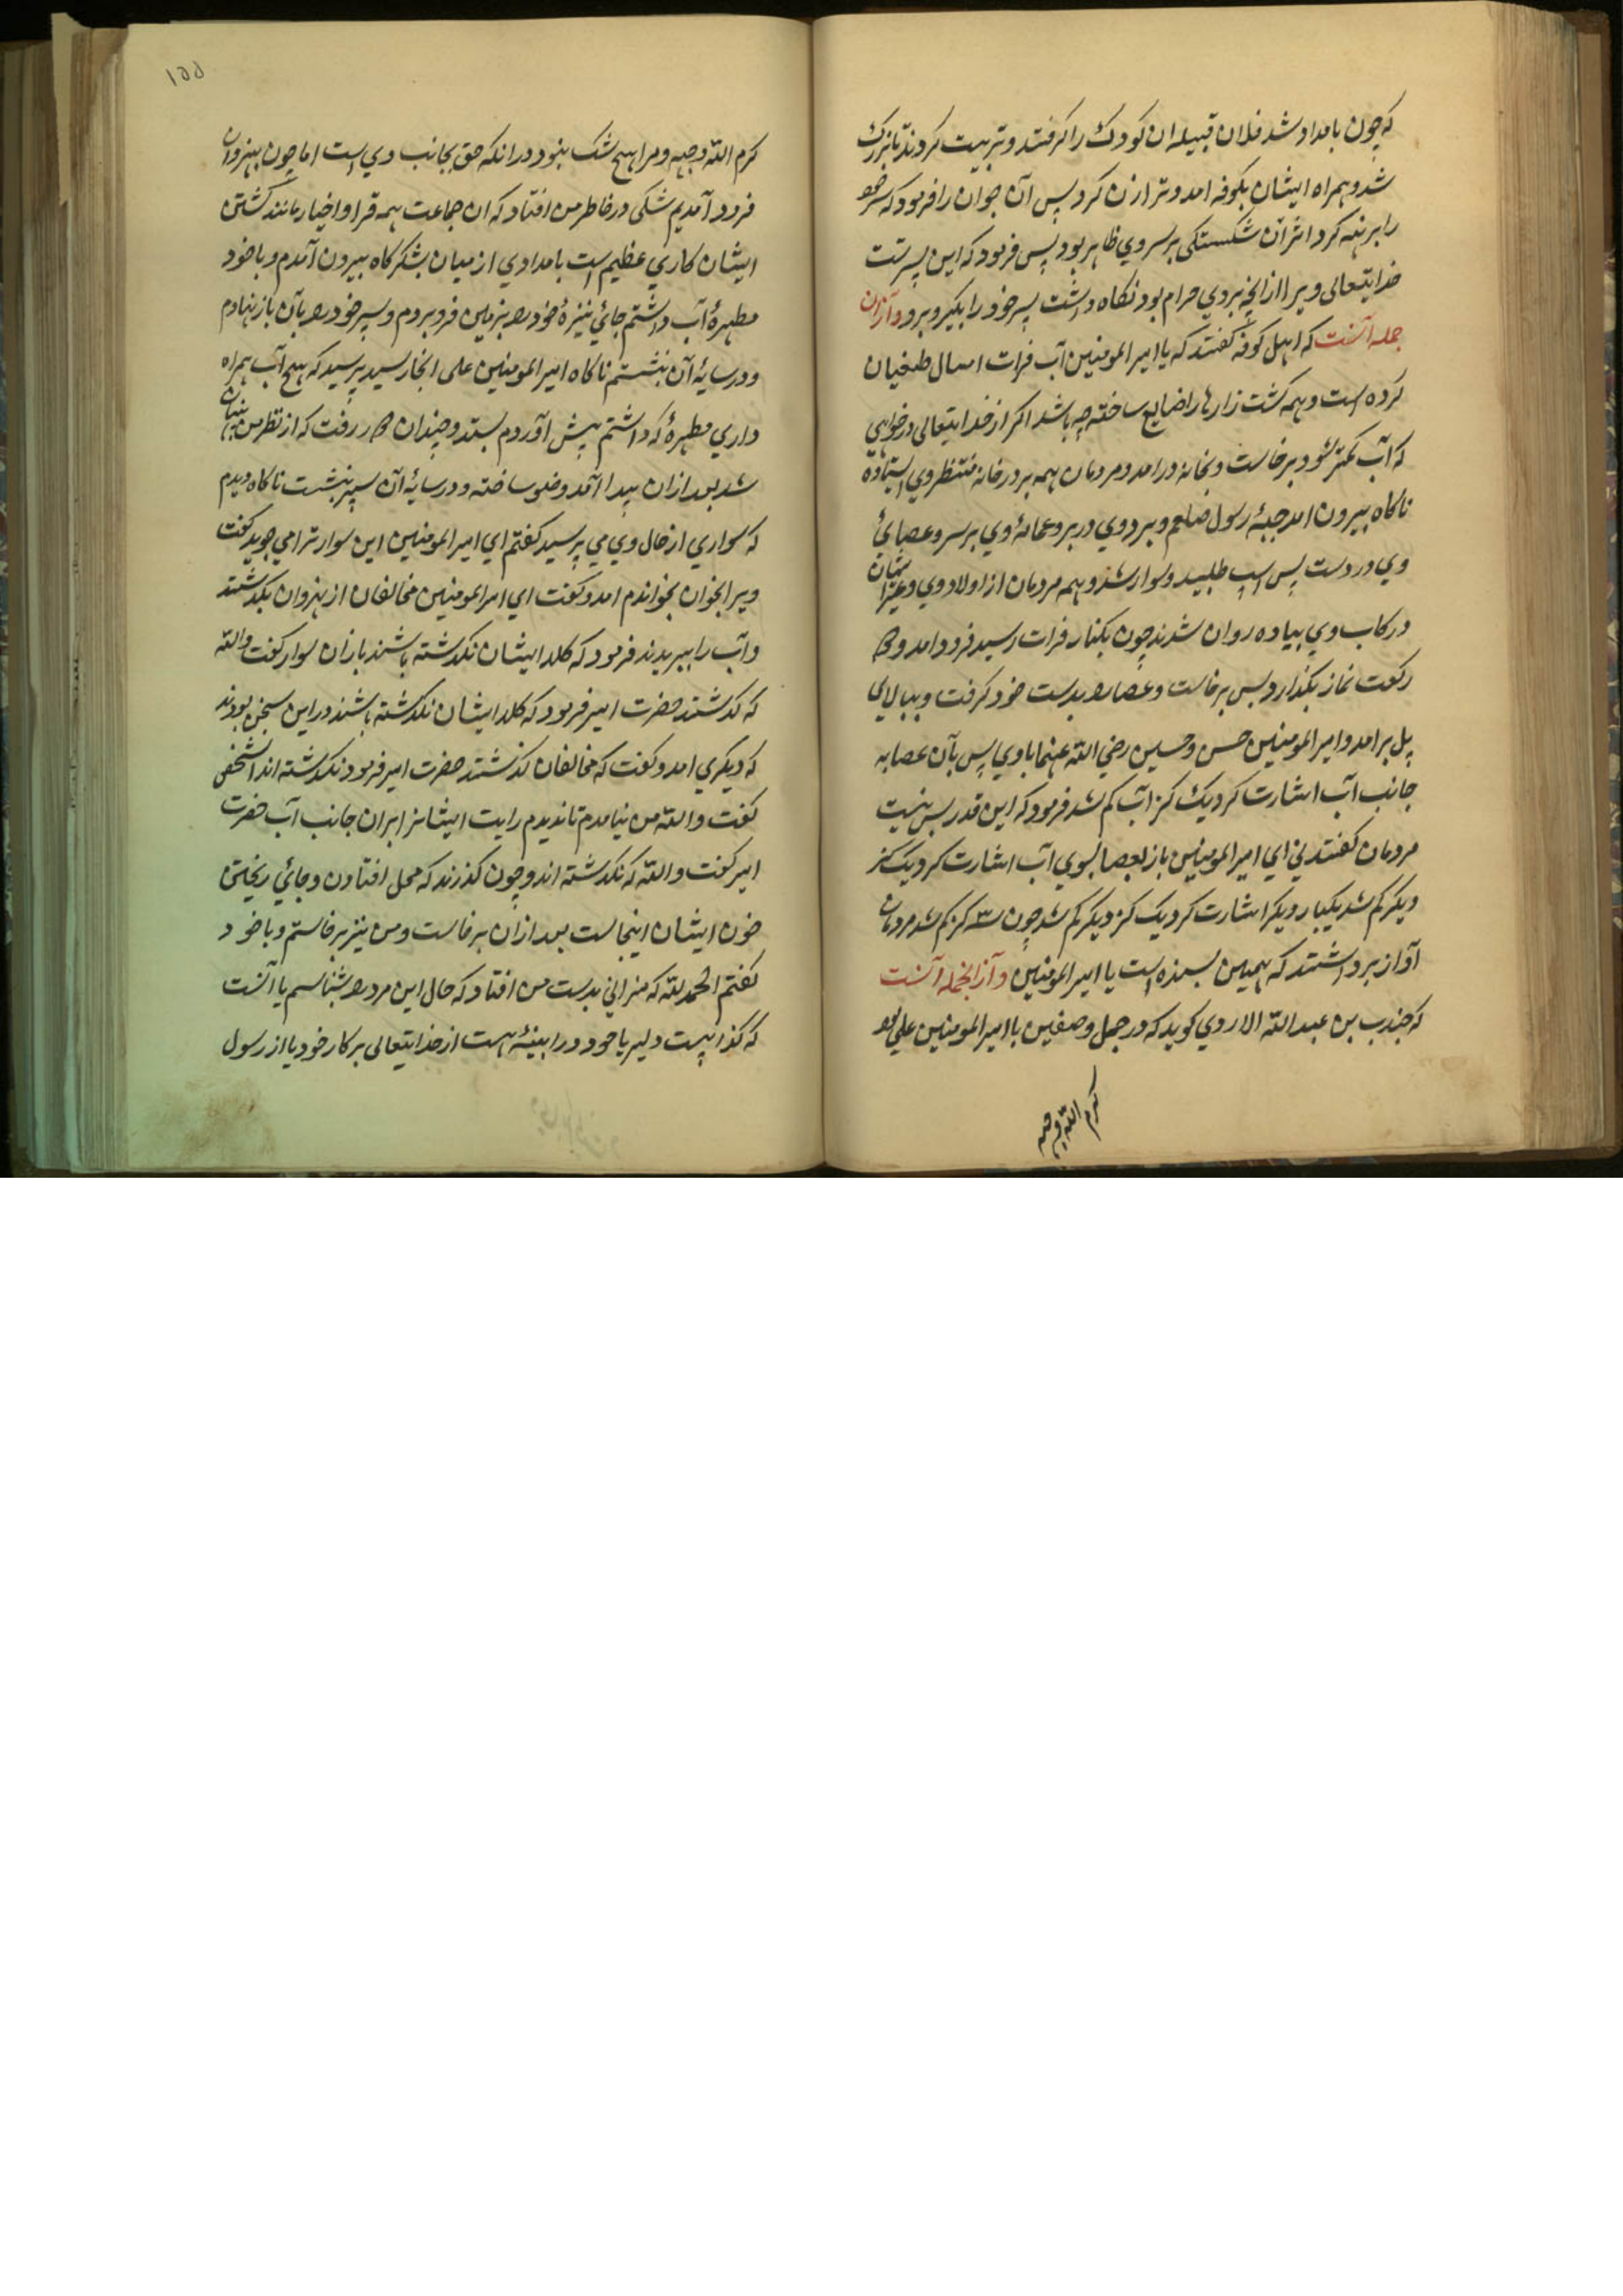 که چون بامداد شد فلان قبیله ان کودک را کرفتند و تربیت کردند تا بزرک
شد و همراه ایشان بکوفه امد و ترا زن کرد پس آن جوان را فرمود که سر خود
را برهنه کرد اثر آن شکستکی بر سر وی ظاهر بود پس فرمود که این پسر تست
خدایتعالی ویرا از انچه بروی حرام بود نکاه داشت پسر خود را بکیر و برو و از ان
جمله آنست که اهل کوفه کفتند که یا امیر المومنین آب فرات امسال طغیان
کرده است و همه کشت زارها را ضایع ساخته چه باشد اکر از خدایتعالی درخواهی
که آب کمتر شود برخاست و بخانه درامد و مردمان همه بر در خانه منتظر وی ایستاده
ناکاه بیرون امد جبهٔ رسول صلعم و برد وی در بر و عمامهٔ وی بر سر و عصای
وی در دست پس اسپ طلبید و سوار شد و همه مردمان از اولاد وی و غیر ایشان
در رکاب وی پیاده روان شدند چون بکنار فرات رسید فرود امد و دو
رکعت نماز بکذارد پس برخاست و عصا را بدست خود کرفت و ببالای
پل برامد و امیر المومنین حسن و حسین رضی الله عنهما با وی پس بآن عصا به
جانب آب اشارت کرد یک کز آب کم شد فرمود که این قدر بس نیست
مردمان کفتند نی ای امیر المومنین باز بعصا بسوی آب اشارت کرد یک کز
دیکر کم شد یکبار دیکر اشارت کرد یک کز دیکر کم شد چون سه کز کم شد مردمان
آواز برداشتند که همین بسنده است یا امیر المومنین و از انجمله آنست
که جندب بن عبد الله الازدی کوید که در جمل و صفین با امیر المومنین علی بود
کرم الله وجهه
۱۵۵
کرم الله وجهه و مرا هیچ شک نبود در انکه حق بجانب وی است اما چون بنهروان
فرود آمدیم شکی در خاطر من افتاد که ان جماعت همه قرا و اخیار مانند کشتن
ایشان کاری عظیم است بامدادی از میان لشکرکاه بیرون آمدم و با خود
مطهرهٔ آب داشتم جائی نیزهٔ خود را بزمین فرو بردم و سپر خود را بآن باز نهادم
و در سایهٔ آن بنشستم ناکاه امیر المومنین علی انجا رسید پرسید که هیچ آب همراه
داری مطهرهٔ که داشتم پیش آوردم بستد و چندان دور رفت که از نظر من پنهان
شد بعد از ان پیدا آمد وضو ساخته و در سایهٔ آن سپر بنشست ناکاه دیدم
که سواری از حال وی می پرسید کفتم ای امیر المومنین این سوار ترا می جوید کفت
ویرا بخوان بخواندم امد و کفت ای امیر المومنین مخالفان از نهروان بکذشتند
و آب را ببریدند فرمود که کلا ایشان نکذشته باشند باز ان سوار کفت والله
که کذشتند حضرت امیر فرمود که کلا ایشان نکذشته باشند در این سخن بودند
که دیکری امد و کفت که مخالفان کذشتند حضرت امیر فرمود نکذشته اند انشخص
کفت والله من نیامدم تا ندیدم رایت ایشانرا بران جانب آب حضرت
امیر کفت والله که نکذشته اند و چون کذرند که محل افتادن و جائی ریختن
خون ایشان اینجاست بعد از ان برخاست و من نیز برخاستم و با خود
کفتم الحمد لله که میزانی بدست من افتاد که حال این مرد را بشناسم یا آنست
که کذابیست دلیر یا خود ورا بینه هست از خدایتعالی بر کار خود یا از رسول